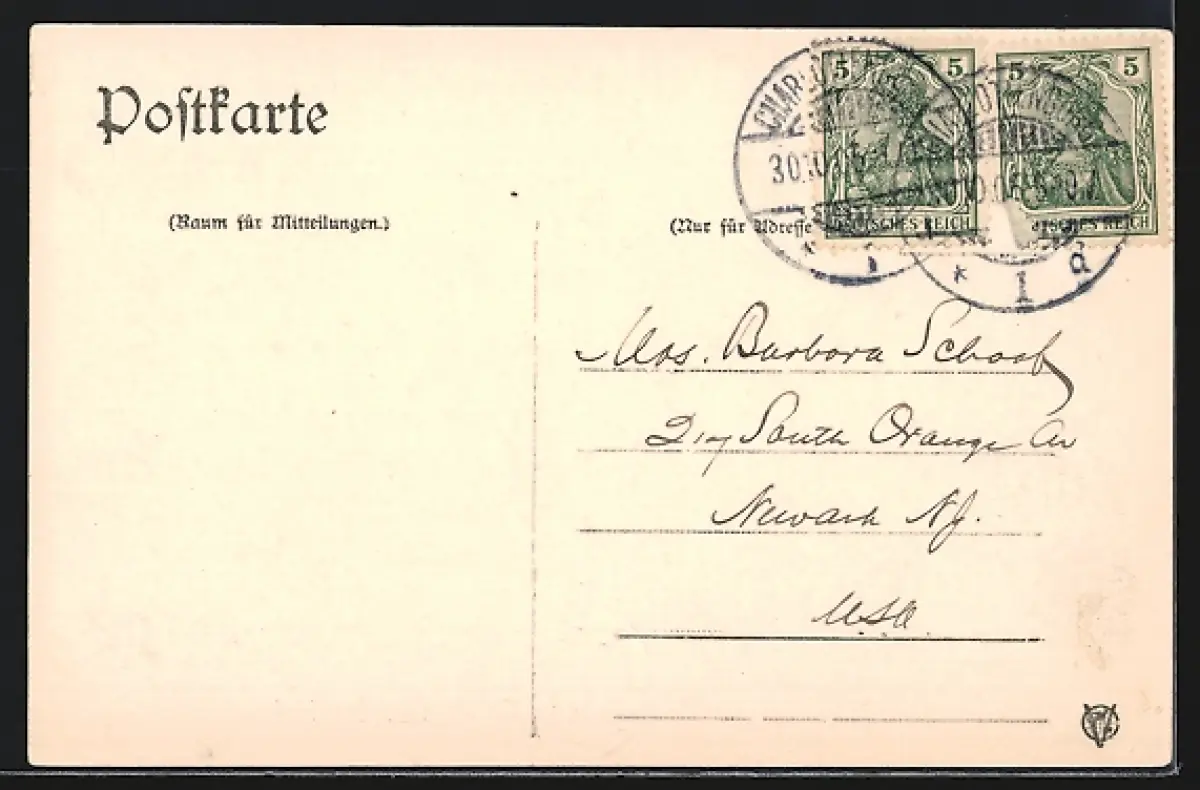 Postkarte
(Raum für Mitteilungen.)
(Nur für Adresse
5 5
5 5
DEUTSCHES REICH
CHARLOTTENBURG
30.10.
* 1
* 1 a
Mrs. Barbara Schaaf
217 South Orange Av
Newark NJ.
USA